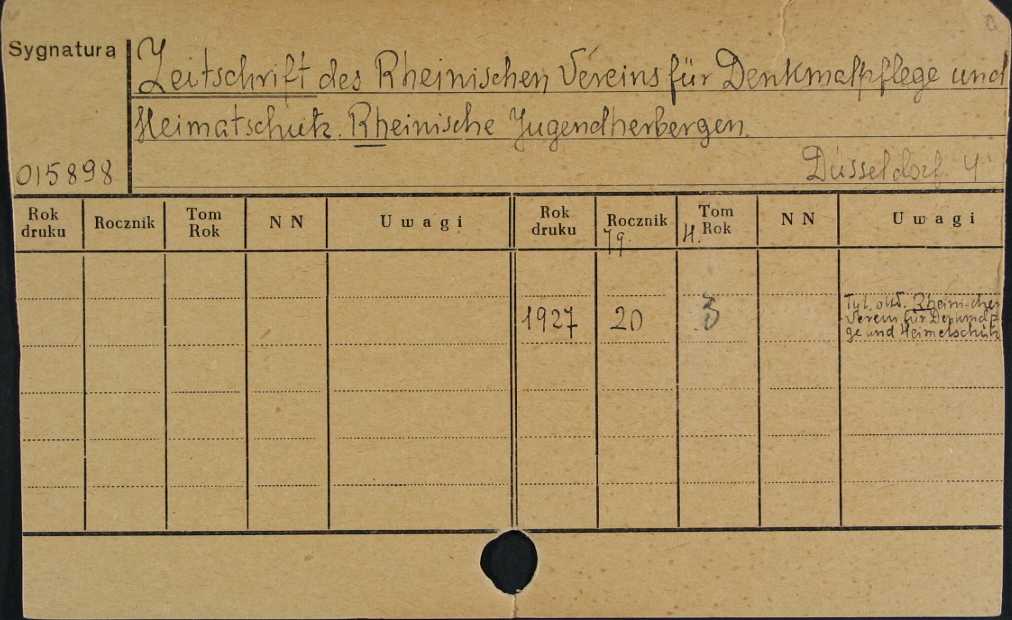 Sygnatura
Zeitschrift des Rheinischen Vereins für Denkmalpflege und
Heimatschutz. Rheinische Jugendherbergen.
015898
Düsseldorf 4°
Rok druku Rocznik Tom Rok NN Uwagi Rok druku Rocznik Tom Rok NN Uwagi
Jg. H.
1927 20 3
Tyt. okł. Rheinischer
Verein für Denkmalpfle
ge und Heimatschutz